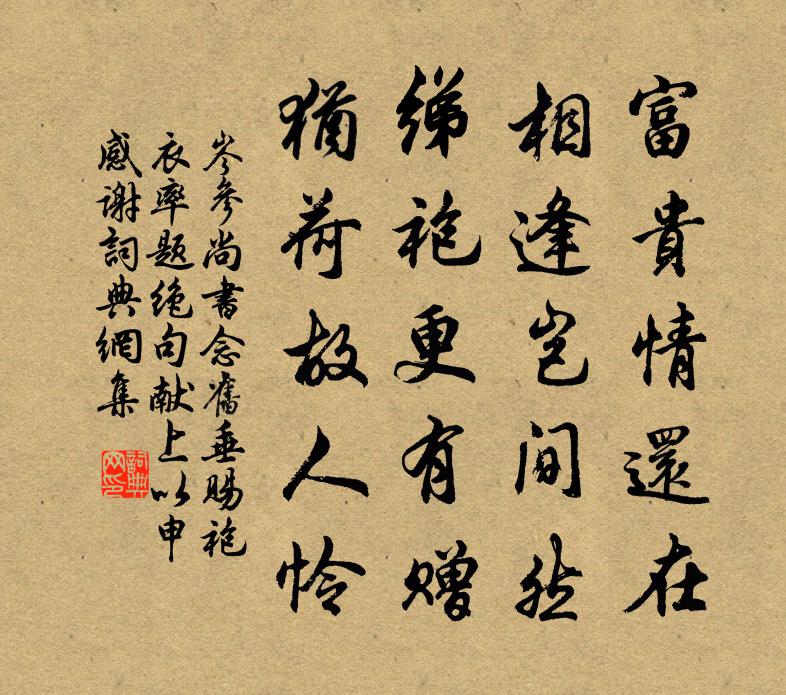 富貴情還在
相逢豈間然
綈袍更有贈
猶荷故人怜
岑參尚書念舊垂賜袍
衣率題絶句献上以申
感謝詞典網集
詞典
网印